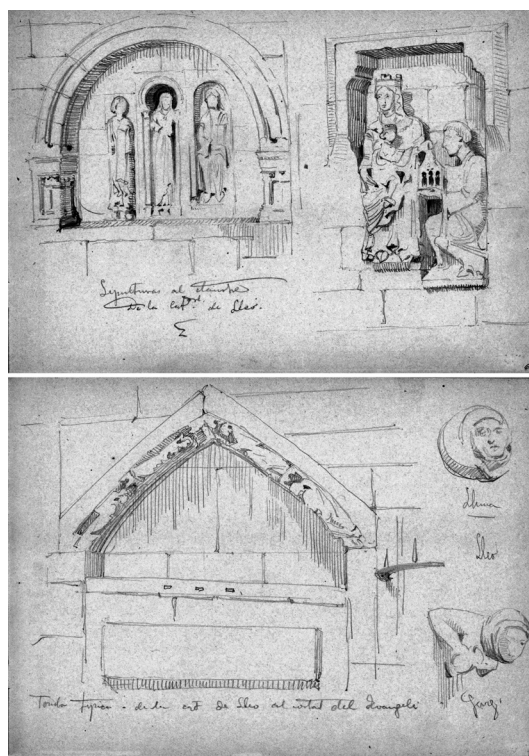 Sepulturas al claustre
De la cat.ral de Lleó.
Lleó
Tomba typica - de la cat de Lleo al costat del Evangeli